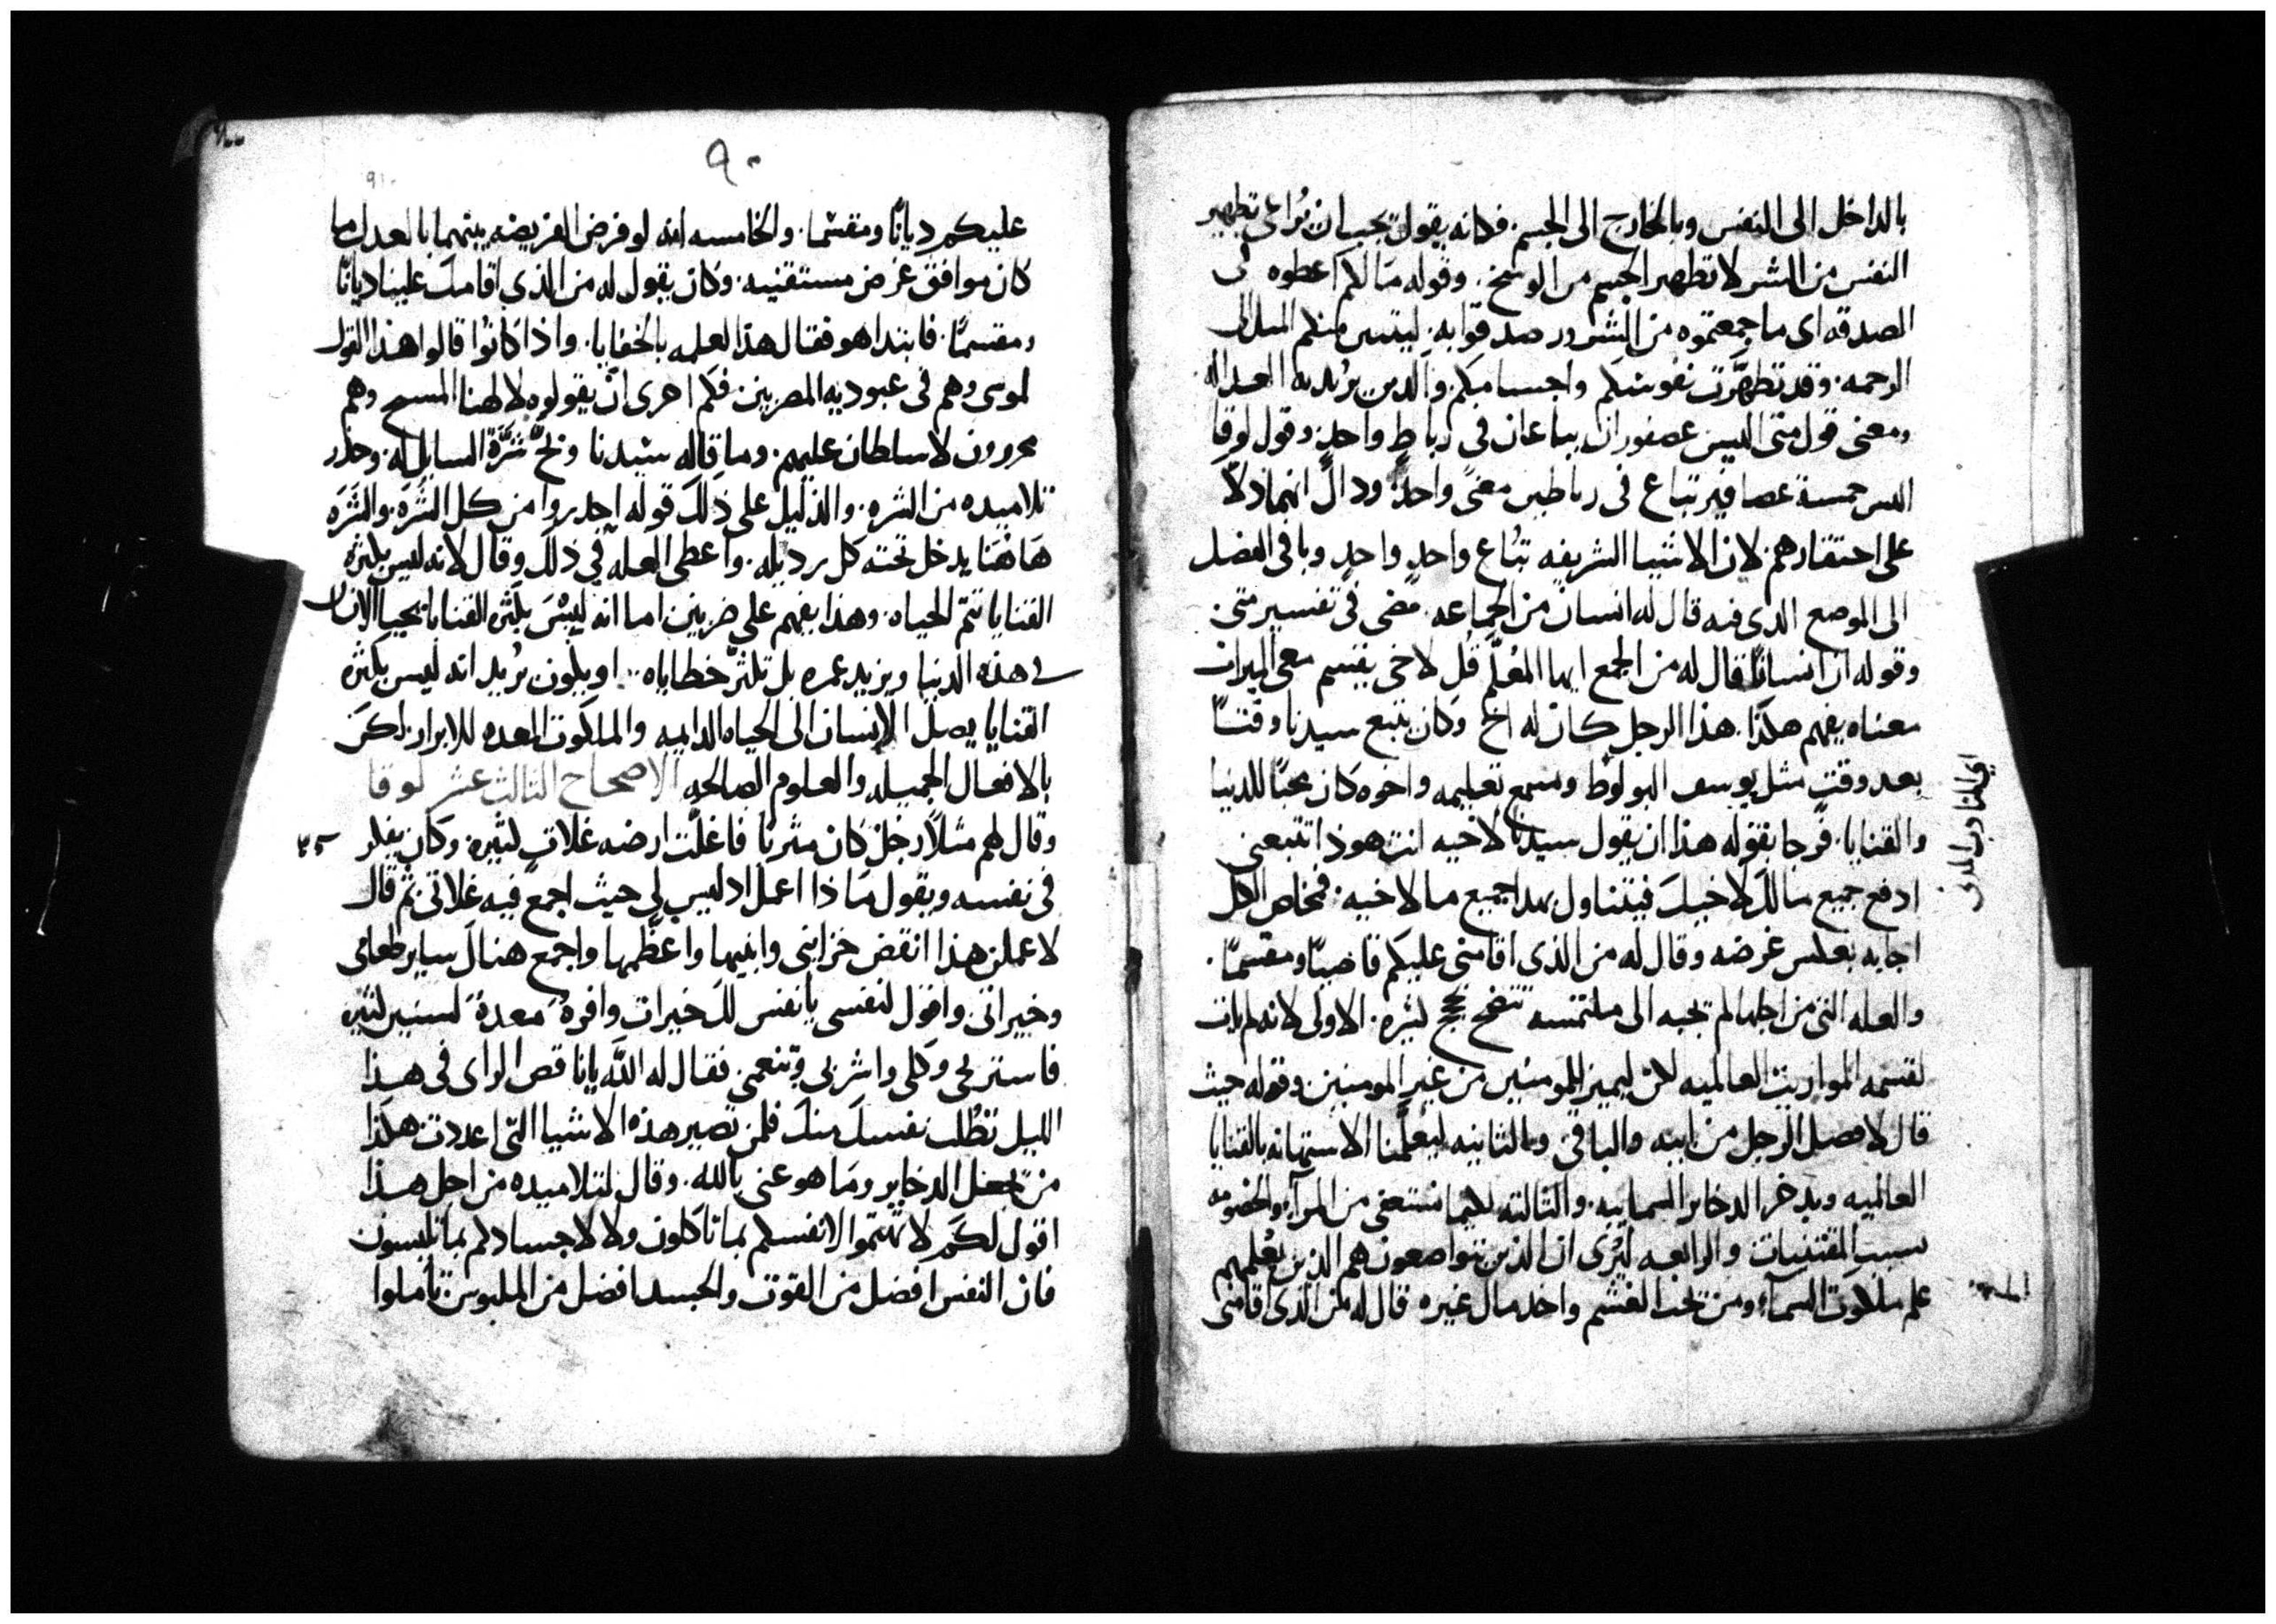 بالداخل الى النفس وبالخارج الى الجسم. فكانه يقول يجب ان تُراعى تطهير
النفس من الشر لا تطهير الجسم من الوسخ. وقوله مالكم اعطوه فى
الصدقه اى ما جمعتموه من الشرور صدقوا به. ليتبين منكم
الرحمه. وقد تطهَّرت نفوسكم واجسامكم. والدين يُريد به العداله
ومعنى قول متى اليس عصفوران يباعان فى رباطٍ واحدٍ. وقول لوقا
اليس خمسة عصافير تباع فى رباطين معنىً واحدً. وذاك انهما دلّا
على احتقارهم لان الاشيا الشريفه تُباع واحدٍ واحدٍ وباقى الفصل
الى الموضع الدى فيه قال له انسان من الجماعه. مضى فى تفسير متى.
وقوله ان انسانًا قال له من الجمع ايها المُعلّم قُل لاخى يقسم معى الميراث
معناه يفهم هكذا. هذا الرجل كان له اخ وكان يتبع سيدنا وقتًا
بعد وقتٍ مثل يوسف البولوط وسمع تعليمه واخوه كان محبًا للدنيا
والقنايا. فرجا بقوله هذا ان يقول سيدنا لاخيه انت هوذا تتبعنى
ادفع جميع مالك لاخيك فيتناول بهدا جميع ما لاخيه. فمخلص الكل
اجابه بعكس غرضه وقال له من الذى اقامنى عليكم قاضيًا ومقسمًا.
والعله التى من اجلها لم يجبه الى ملتمسه تتضح بحجج كثيره. الاولى لانه لم يات
لقسمه المواريث العالميه لكن ليميز المومنين من غير المومنين. وقوله حيث
قال لافصل الرجل من ابيه والباقى والثانيه ليعلّمنا الاستهانه بالقنايا
العالميه ويدخر الدخاير السمانيه. والثالثه لكيما نستعفى من المرآء والخصومه
بسبب المقتنيات والرابعه ليُرى ان الذين يتواضعون هم الذين يُعلمهم
علم ملكوت السمآء ومن يحب الغشم واخد مال غيره قال له من الذى اقامنى
٩٠
عليكم ديانًا ومقسمًا. والخامسه انه لو فرض الفريضه بينهما بالعدل ما
كان موافق غرض مستقنيه. وكان يقول له من الذى اقامك علينا ديانًا
ومقسمًا. فابتدا هو فقال هذا لعلمه بالخفايا. واذا كانوا قالوا هذا القول
لموسى وهم فى عبوديه المصريين. فكم احرى ان يقولوه لالهنا المسيح وهم
محررون لا سلطان عليهم. وما قاله سيدنا وبَّخ شرَّة السايل له. وحذر
تلاميده من الشره. والدليل على ذلك قوله احدروا من كل الشَرَه. والشَرَه
هاهُنا يدخل تحته كل رديله. واعطى العله فى ذلك وقال لانه ليس بكثره
القنايا تتم الحياه. وهذا يفهم على ضربين اما انه ليسَ بكثره القنايا يحيا الانسان
فى هذه الدنيا ويزيد عمره بل تكثر خطاياه.. او يكون يُريد انه ليس بكثره
القنايا يصل الانسان الى الحياه الدايمه والملكوت المعده للابرار. لكن
بالافعال الجميله والعلوم الصالحه الاصحاح الثالث عشر لوقا
وقال لهم مثلًا رجل كان مثريًا فاغلَّت ارضه غلاتٍ كثيره. وكان يفكر
فى نفسه ويقول ماذا اعمل اد ليس لى حيث اجمع فيه غلاتى. ثم قال
لاعملن هذا انقض خزاينى وابنيها واعظّمها واجمع هناك ساير طعامى
وخيراتى. واقول لنفسى يا نفس لك خيرات وافرهٌ معدةٌ لسنين كثيره
فاستريحى وكلى واشربى وتنعمى. فقال له اللّه يا ناقص الراى فى هذا
الليل تُطلب نفسك منك فلمن تصير هذه الاشيا التى اعددت. هكذا
من يجعل الدخاير وما هو غنى باللّه. وقال لتلاميده من اجل هذا
اقول لكم لا تهتموا لانفسكم بما تاكلون ولا لاجسادكم بما تلبسون
فان النفس افضل من القوت والجسد افضل من الملبوس. تاملوا